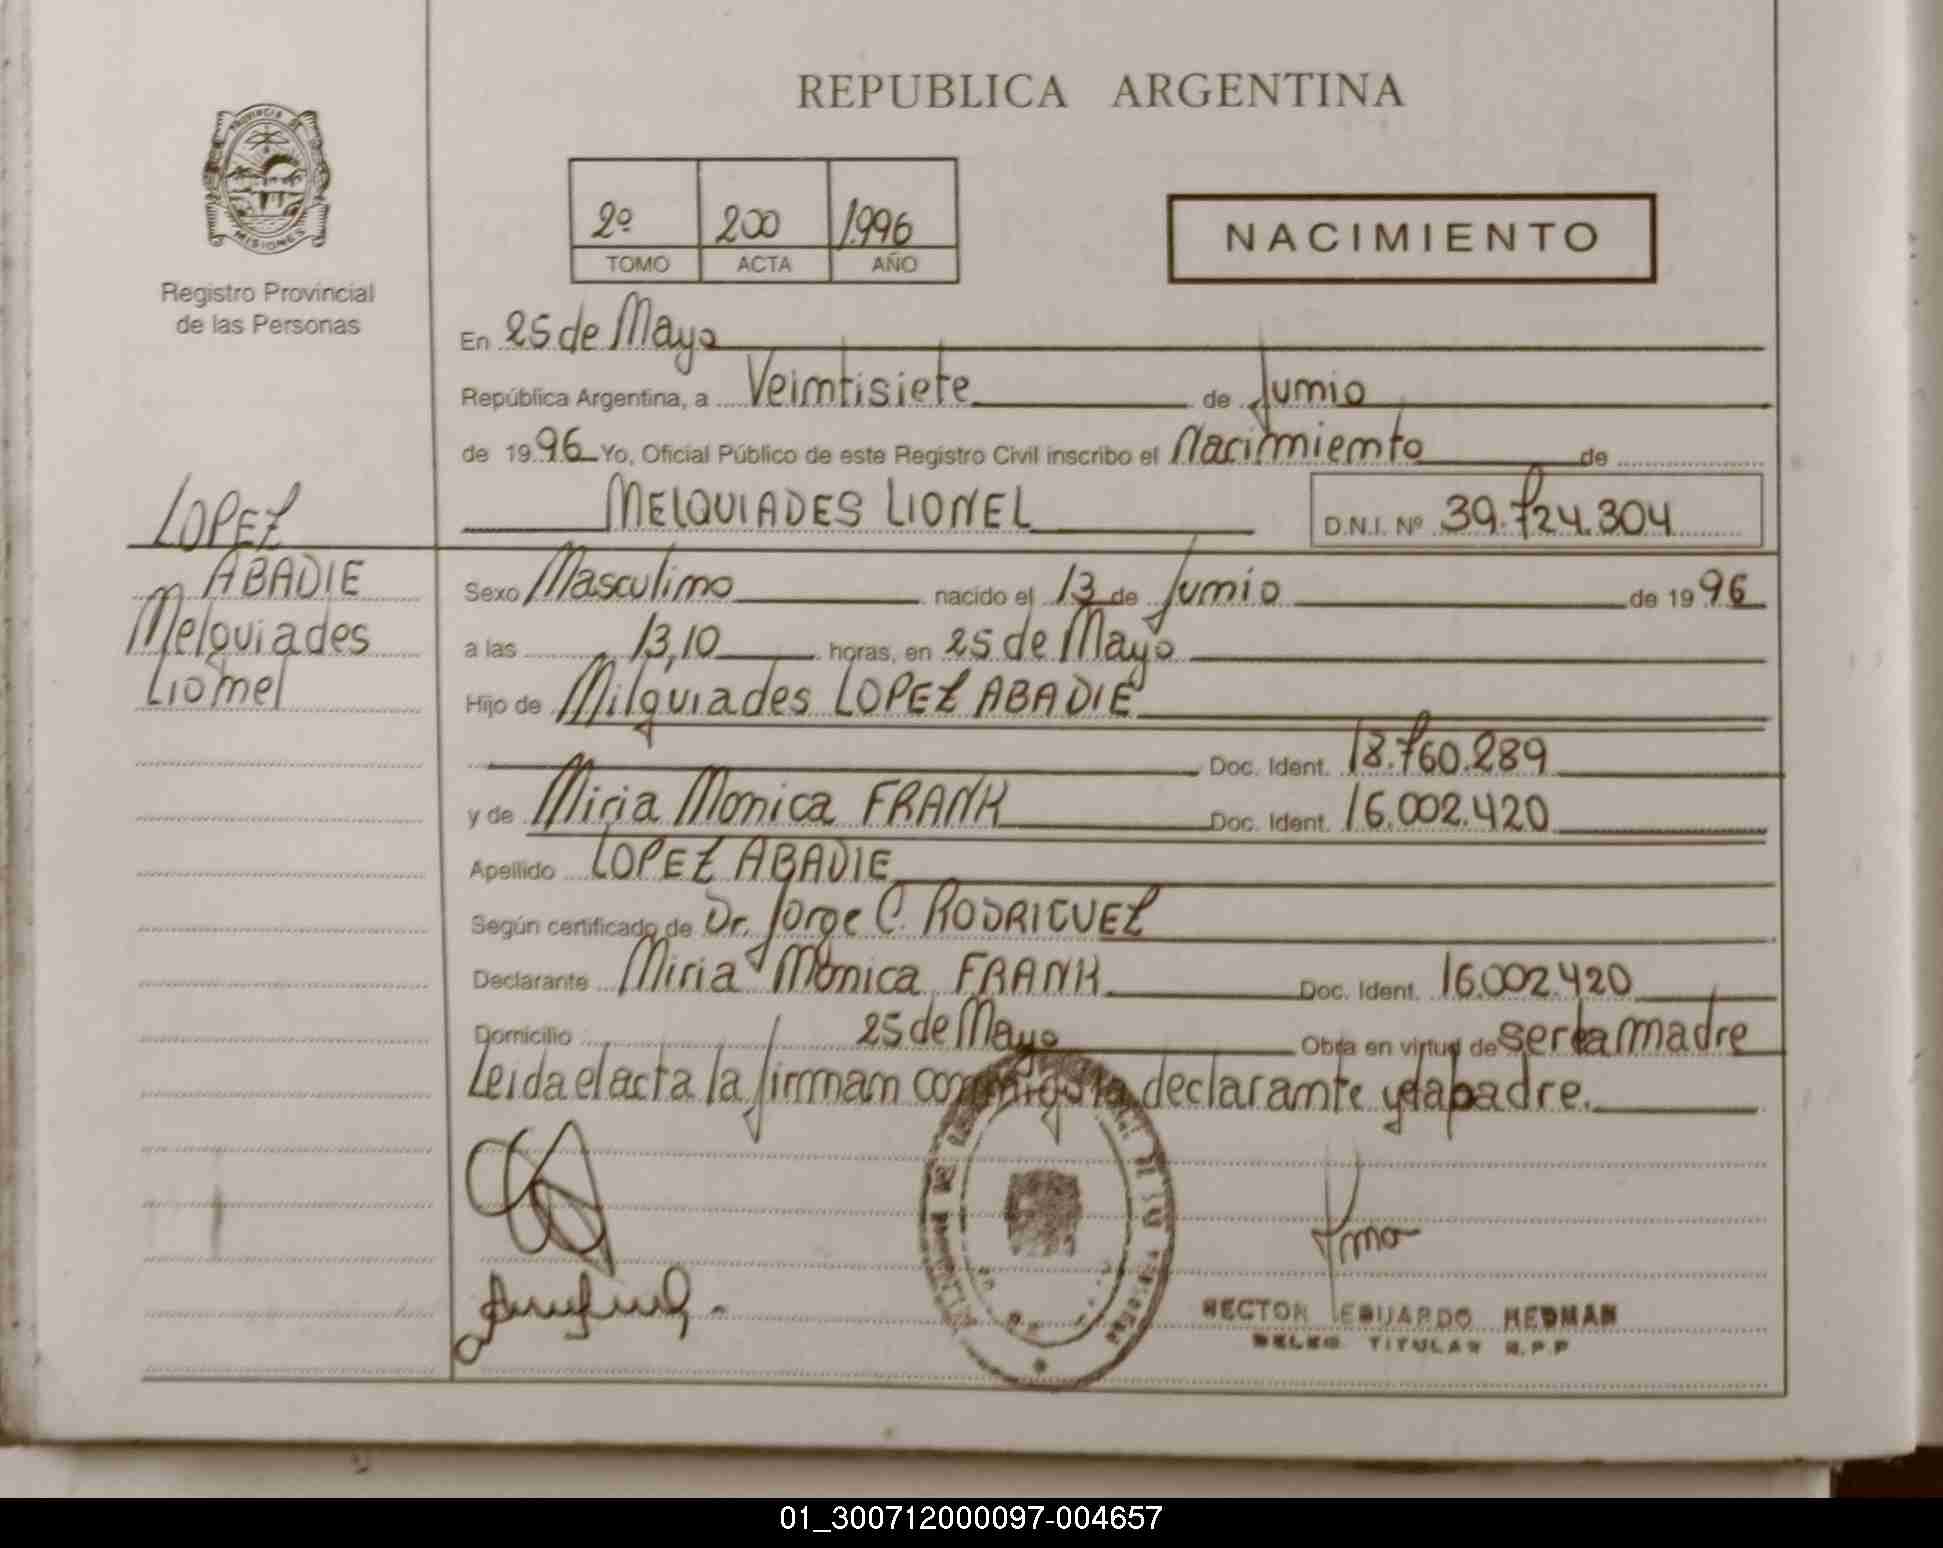 REPUBLICA ARGENTINA
PROVINCIA DE
MISIONES
Registro Provincial
de las Personas
2º 200 1996
TOMO ACTA AÑO
NACIMIENTO
En 25 de Mayo
República Argentina, a Veintisiete de Junio
de 1996 Yo, Oficial Público de este Registro Civil inscribo el Nacimiento de
MELQUIADES LIONEL D.N.I. Nº 39.724.304
LOPEZ
ABADIE
Melquiades
Lionel
Sexo Masculino nacido el 13 de Junio de 1996
a las 13,10 horas, en 25 de Mayo
Hijo de Milquiades LOPEZ ABADIE
Doc. Ident. 18.760.289
y de Miria Monica FRANK Doc. Ident. 16.002.420
Apellido LOPEZ ABADIE
Según certificado de Dr. Jorge C. RODRIGUEZ
Declarante Miria Monica FRANK Doc. Ident. 16.002.420
Domicilio 25 de Mayo Obra en virtud de ser la madre
Leida el acta la firman conmigo la declarante y el padre.
HECTOR EDUARDO HEDMAN
DELEG. TITULAR R.P.P
01_300712000097-004657